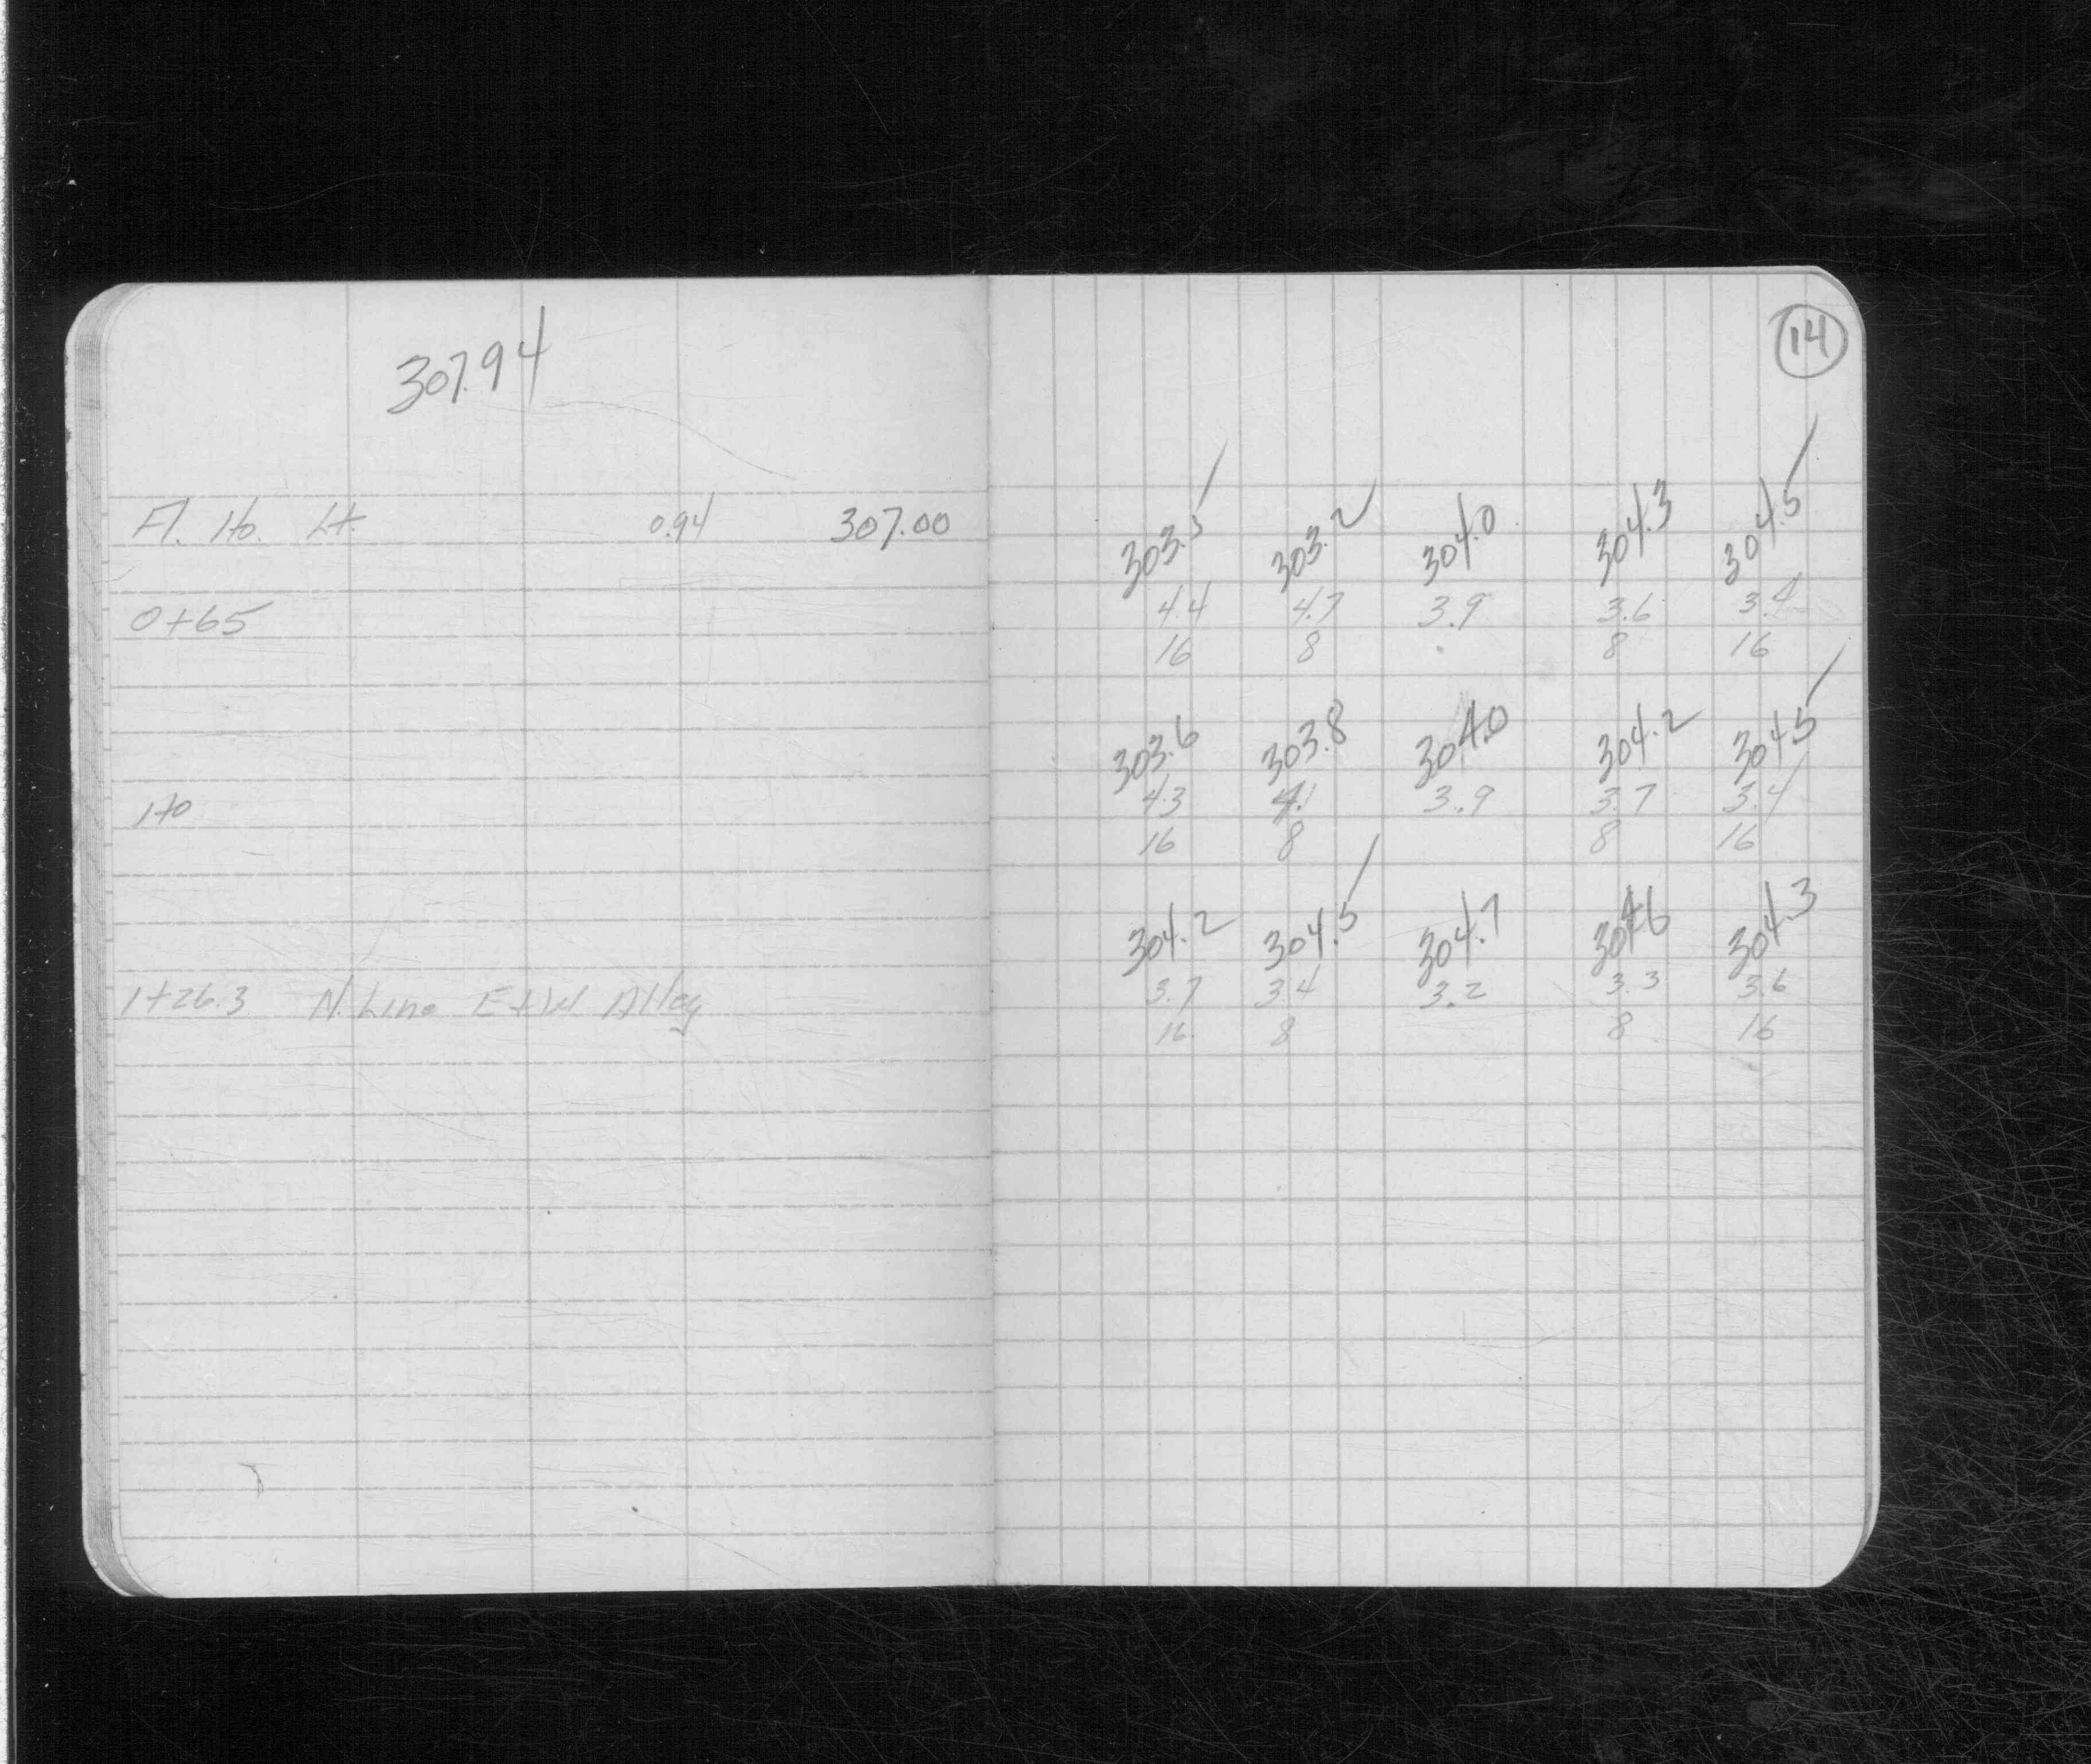 14
307.94
Fl. Ho. Lt. 0.94 307.00 303.5 303.2 304.0 304.3 304.5
0+65 4.4 4.7 3.9 3.6 3.4
16 8 8 16
303.6 303.8 304.0 304.2 304.5
1+0 4.3 4.1 3.9 3.7 3.4
16 8 8 16
304.2 304.5 304.7 304.6 304.3
1+26.3 N. Line E+W Alley 3.7 3.4 3.2 3.3 3.6
16 8 8 16